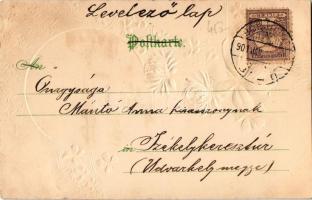 Levelező lap
Postkarte.
An
Őnagysága
Mántó Anna kisasszonynak
in Székelykeresztúr
(Udvarhelymegye)